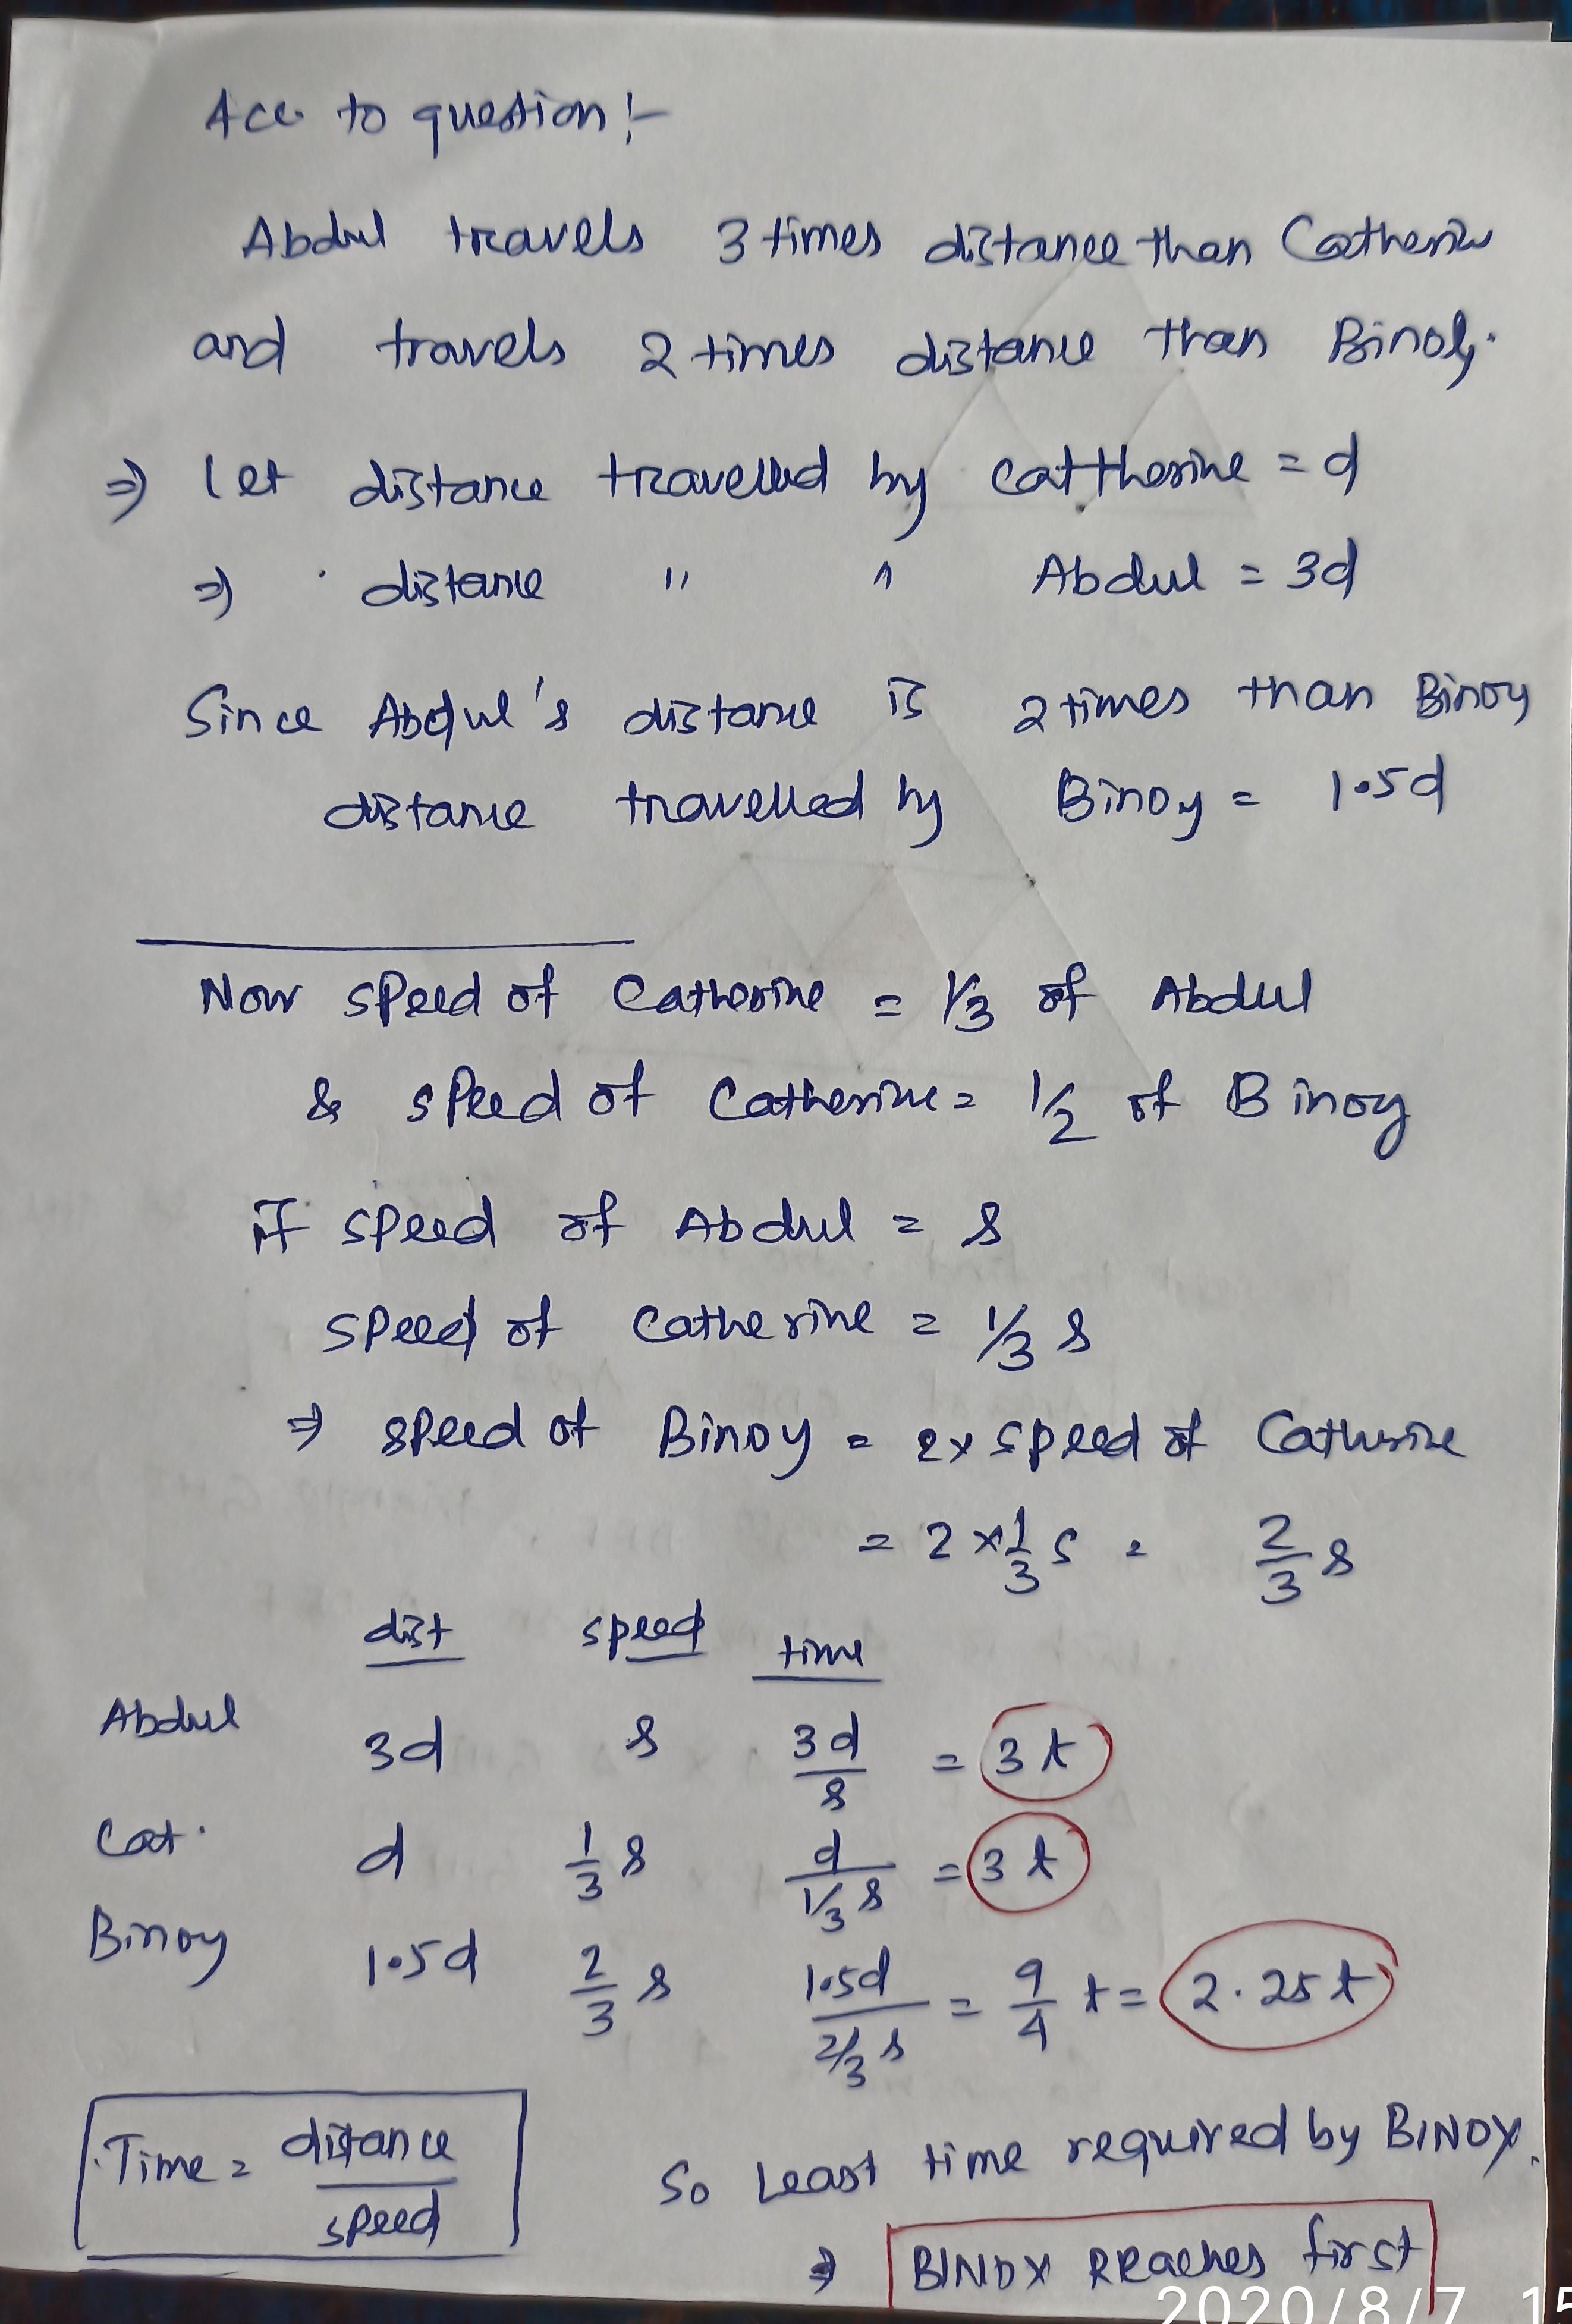 Acc. to question :-
Abdul travels 3 times distance than Catherine
and travels 2 times distance than Binoy.
⇒ Let distance travelled by Cattherine = d
⇒ distance " " Abdul = 3d
Since Abdul's distance is 2 times than Binoy
distance travelled by Binoy = 1.5d
Now speed of Catherine = 1/3 of Abdul
& speed of Catherine = 1/2 of Binoy
if speed of Abdul = s
speed of Catherine = 1/3 s
⇒ speed of Binoy = 2x speed of Catherine
= 2 × 1/3 s = 2/3 s
dist speed time
Abdul 3d s 3d/s = 3t
Cat. d 1/3 s d/(1/3 s) = 3t
Binoy 1.5d 2/3 s 1.5d/(2/3 s) = 9/4 t = 2.25t
Time = distance/speed
So Least time required by BINOY.
⇒ BINOY Reaches first
2020/8/7 15